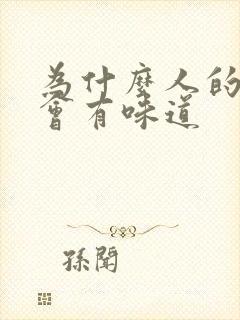 為什麼人的
會有味道
孫聞